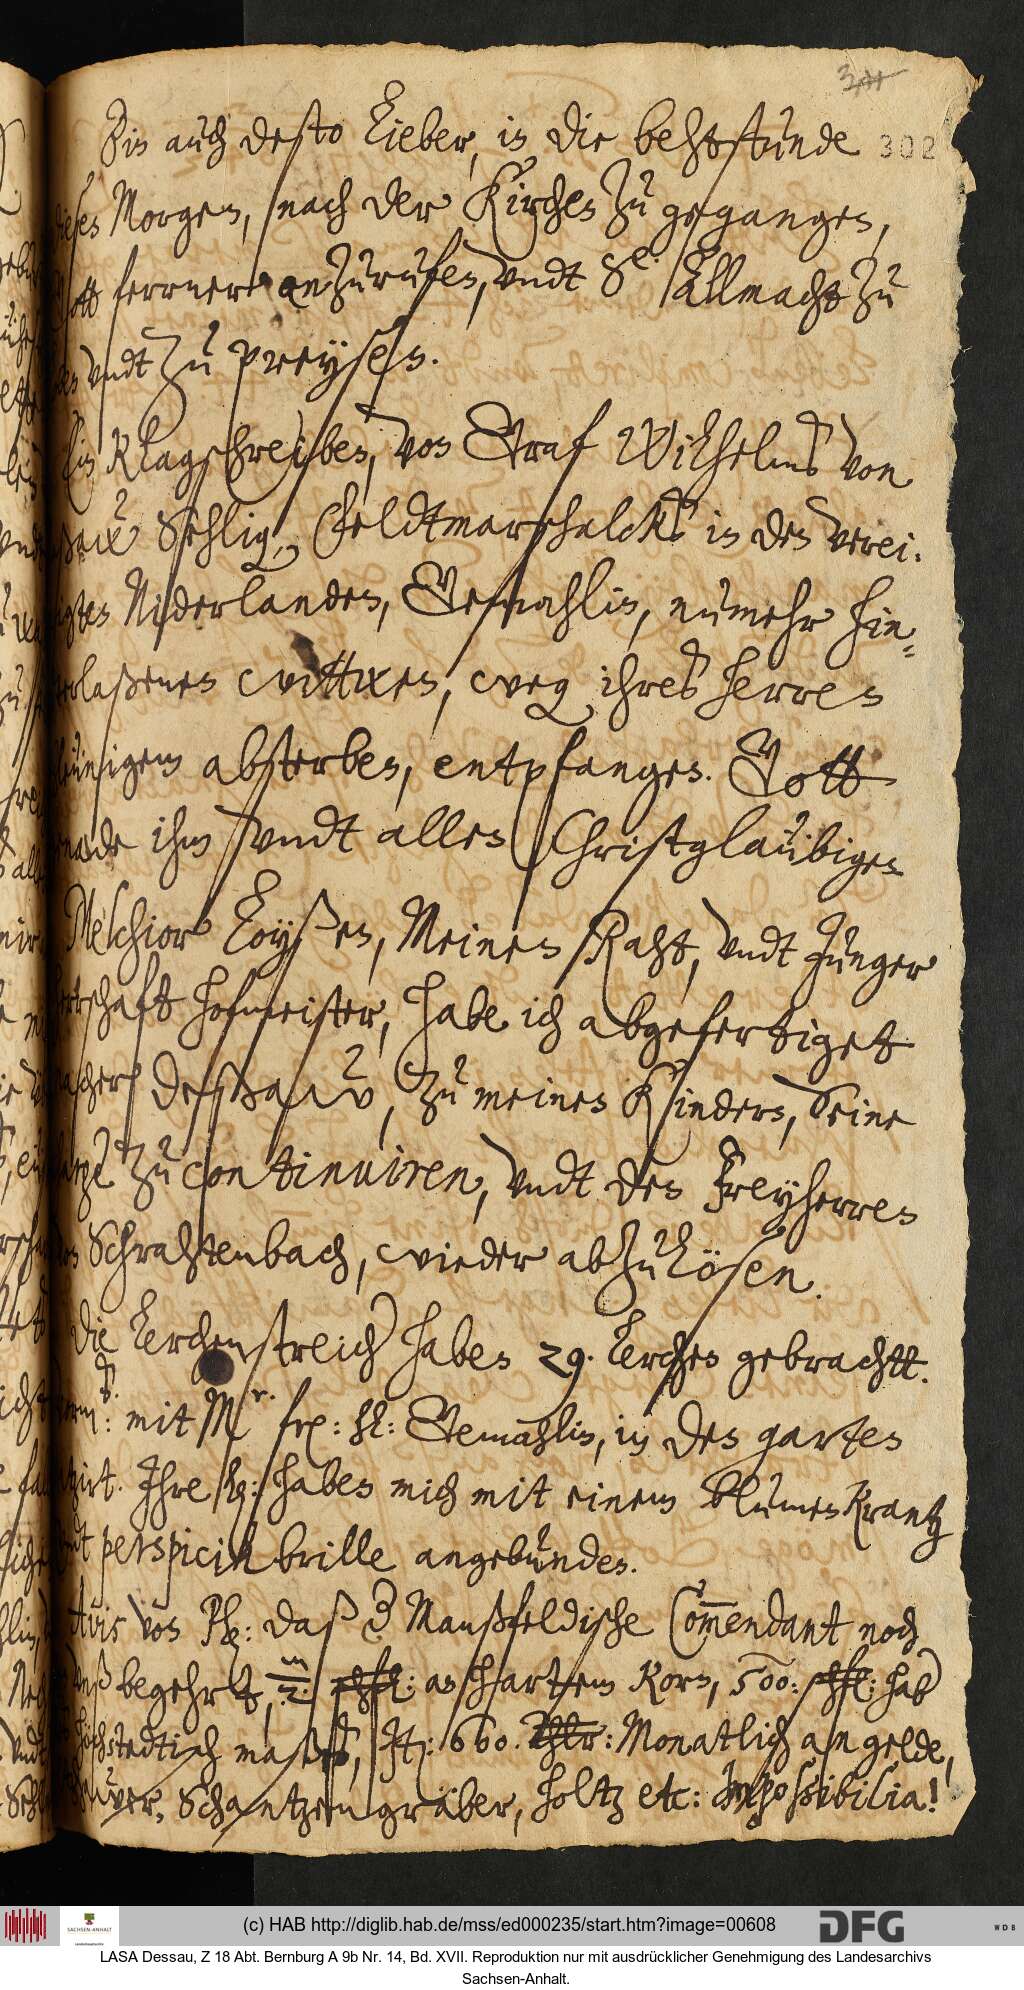 Bin auch desto Lieber, in die behtstunde
302
dieses Morgen, nach der Kirchen zu gegangen,
Gott ferrner anzurufen, undt Se Allmacht zu
undt zu preysen.
Ein Klagschreiben, von Graf Wilhelms von
Naßaw Sehlig, Feldtmarschalcks in den verei-
nigten Niderlanden, Gemahlin, nunmehr hin-
terlaßenen wittwen, weg ihres herren
absterben, entpfangen. Gott
gnade ihm undt allen Christglaubigen
Melchior Loyßen, Meinen Raht, undt Junger
herrschaft hofmeister, habe ich abgefertiget
nacher Deßaw, zu meinen Kindern, seine
charge zu continuiren, undt den Freyherren
von Schrahtenbach, wieder abzulösen.
Die Lerchenstreich haben 29. Lerchen gebrachtt.
mit Mr. frl: hl: Gemahlin, in den garten
spatzirt. Ihre L: haben mich mit einem blumenKrantz
undt perspicill brille angebunden.
Avis von Pl: daß der Manßfeldische Commendant noch
begehrt, an hartem Korn, 500: hab
maßes, It: 660. Thlr: Monatlich an gelde,
Schantzengräber, holtz etc: Impossibilia!
(c) HAB http://diglib.hab.de/mss/ed000235/start.htm?image=00608
SACHSEN-ANHALT
DFG
WDB
LASA Dessau, Z 18 Abt. Bernburg A 9b Nr. 14, Bd. XVII. Reproduktion nur mit ausdrücklicher Genehmigung des Landesarchivs
Sachsen-Anhalt.